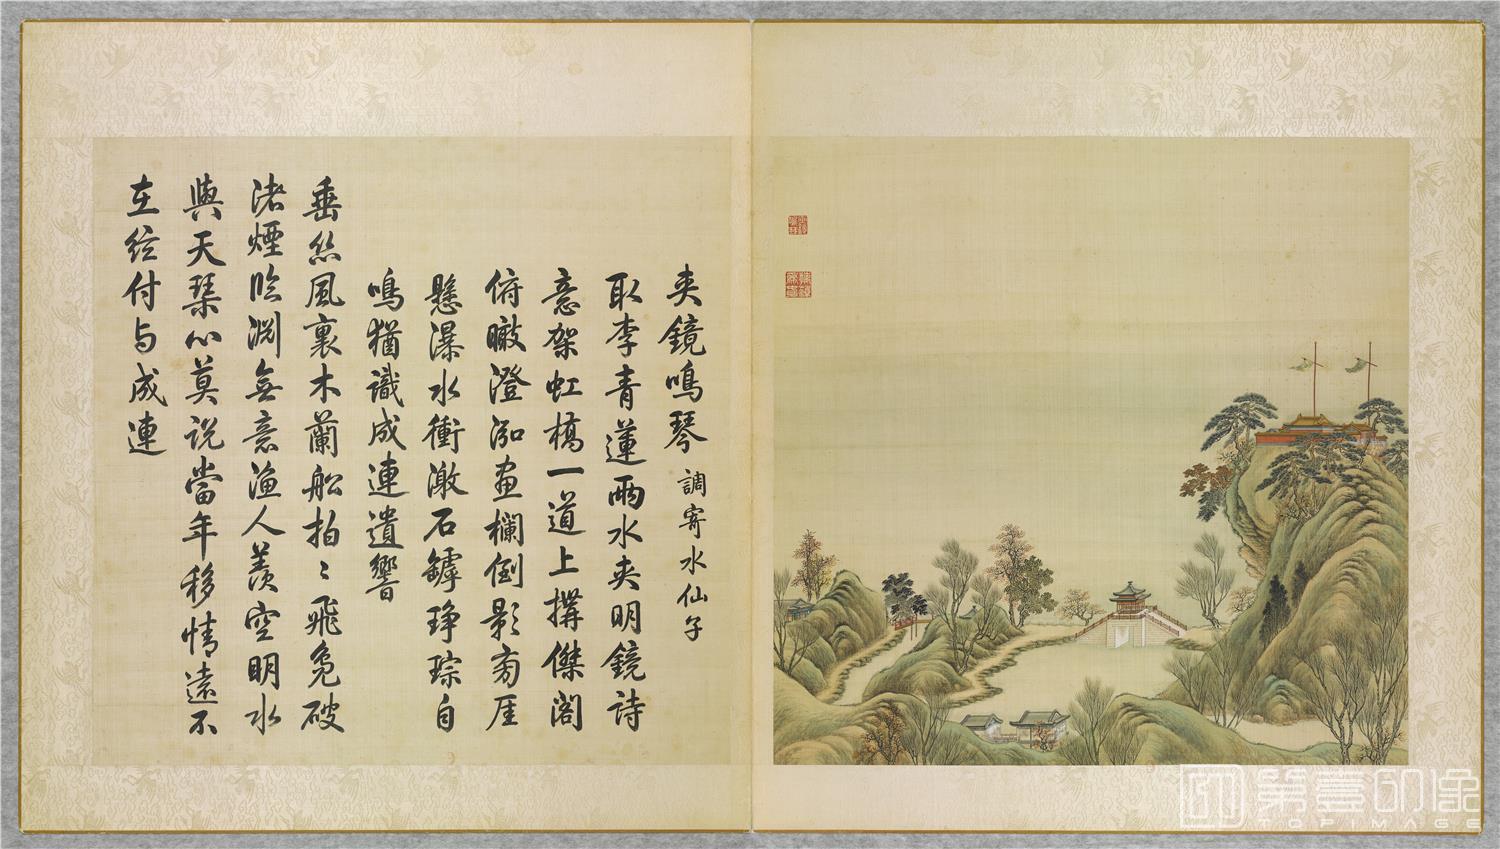 夾鏡鳴琴 調寄水仙子
取李青蓮兩水夾明鏡詩
意架虹橋一道上搆傑閣
俯瞰澄泓畫欄倒影旁厓
懸瀑水衝激石罅琤琮自
鳴猶識成連遺響
垂絲風裏木蘭船拍〻飛鳧破
渚煙臨淵無意漁人羨空明水
與天琴心莫説當年移情遠不
在絃付与成連
第壹印像
TOPIMAGE